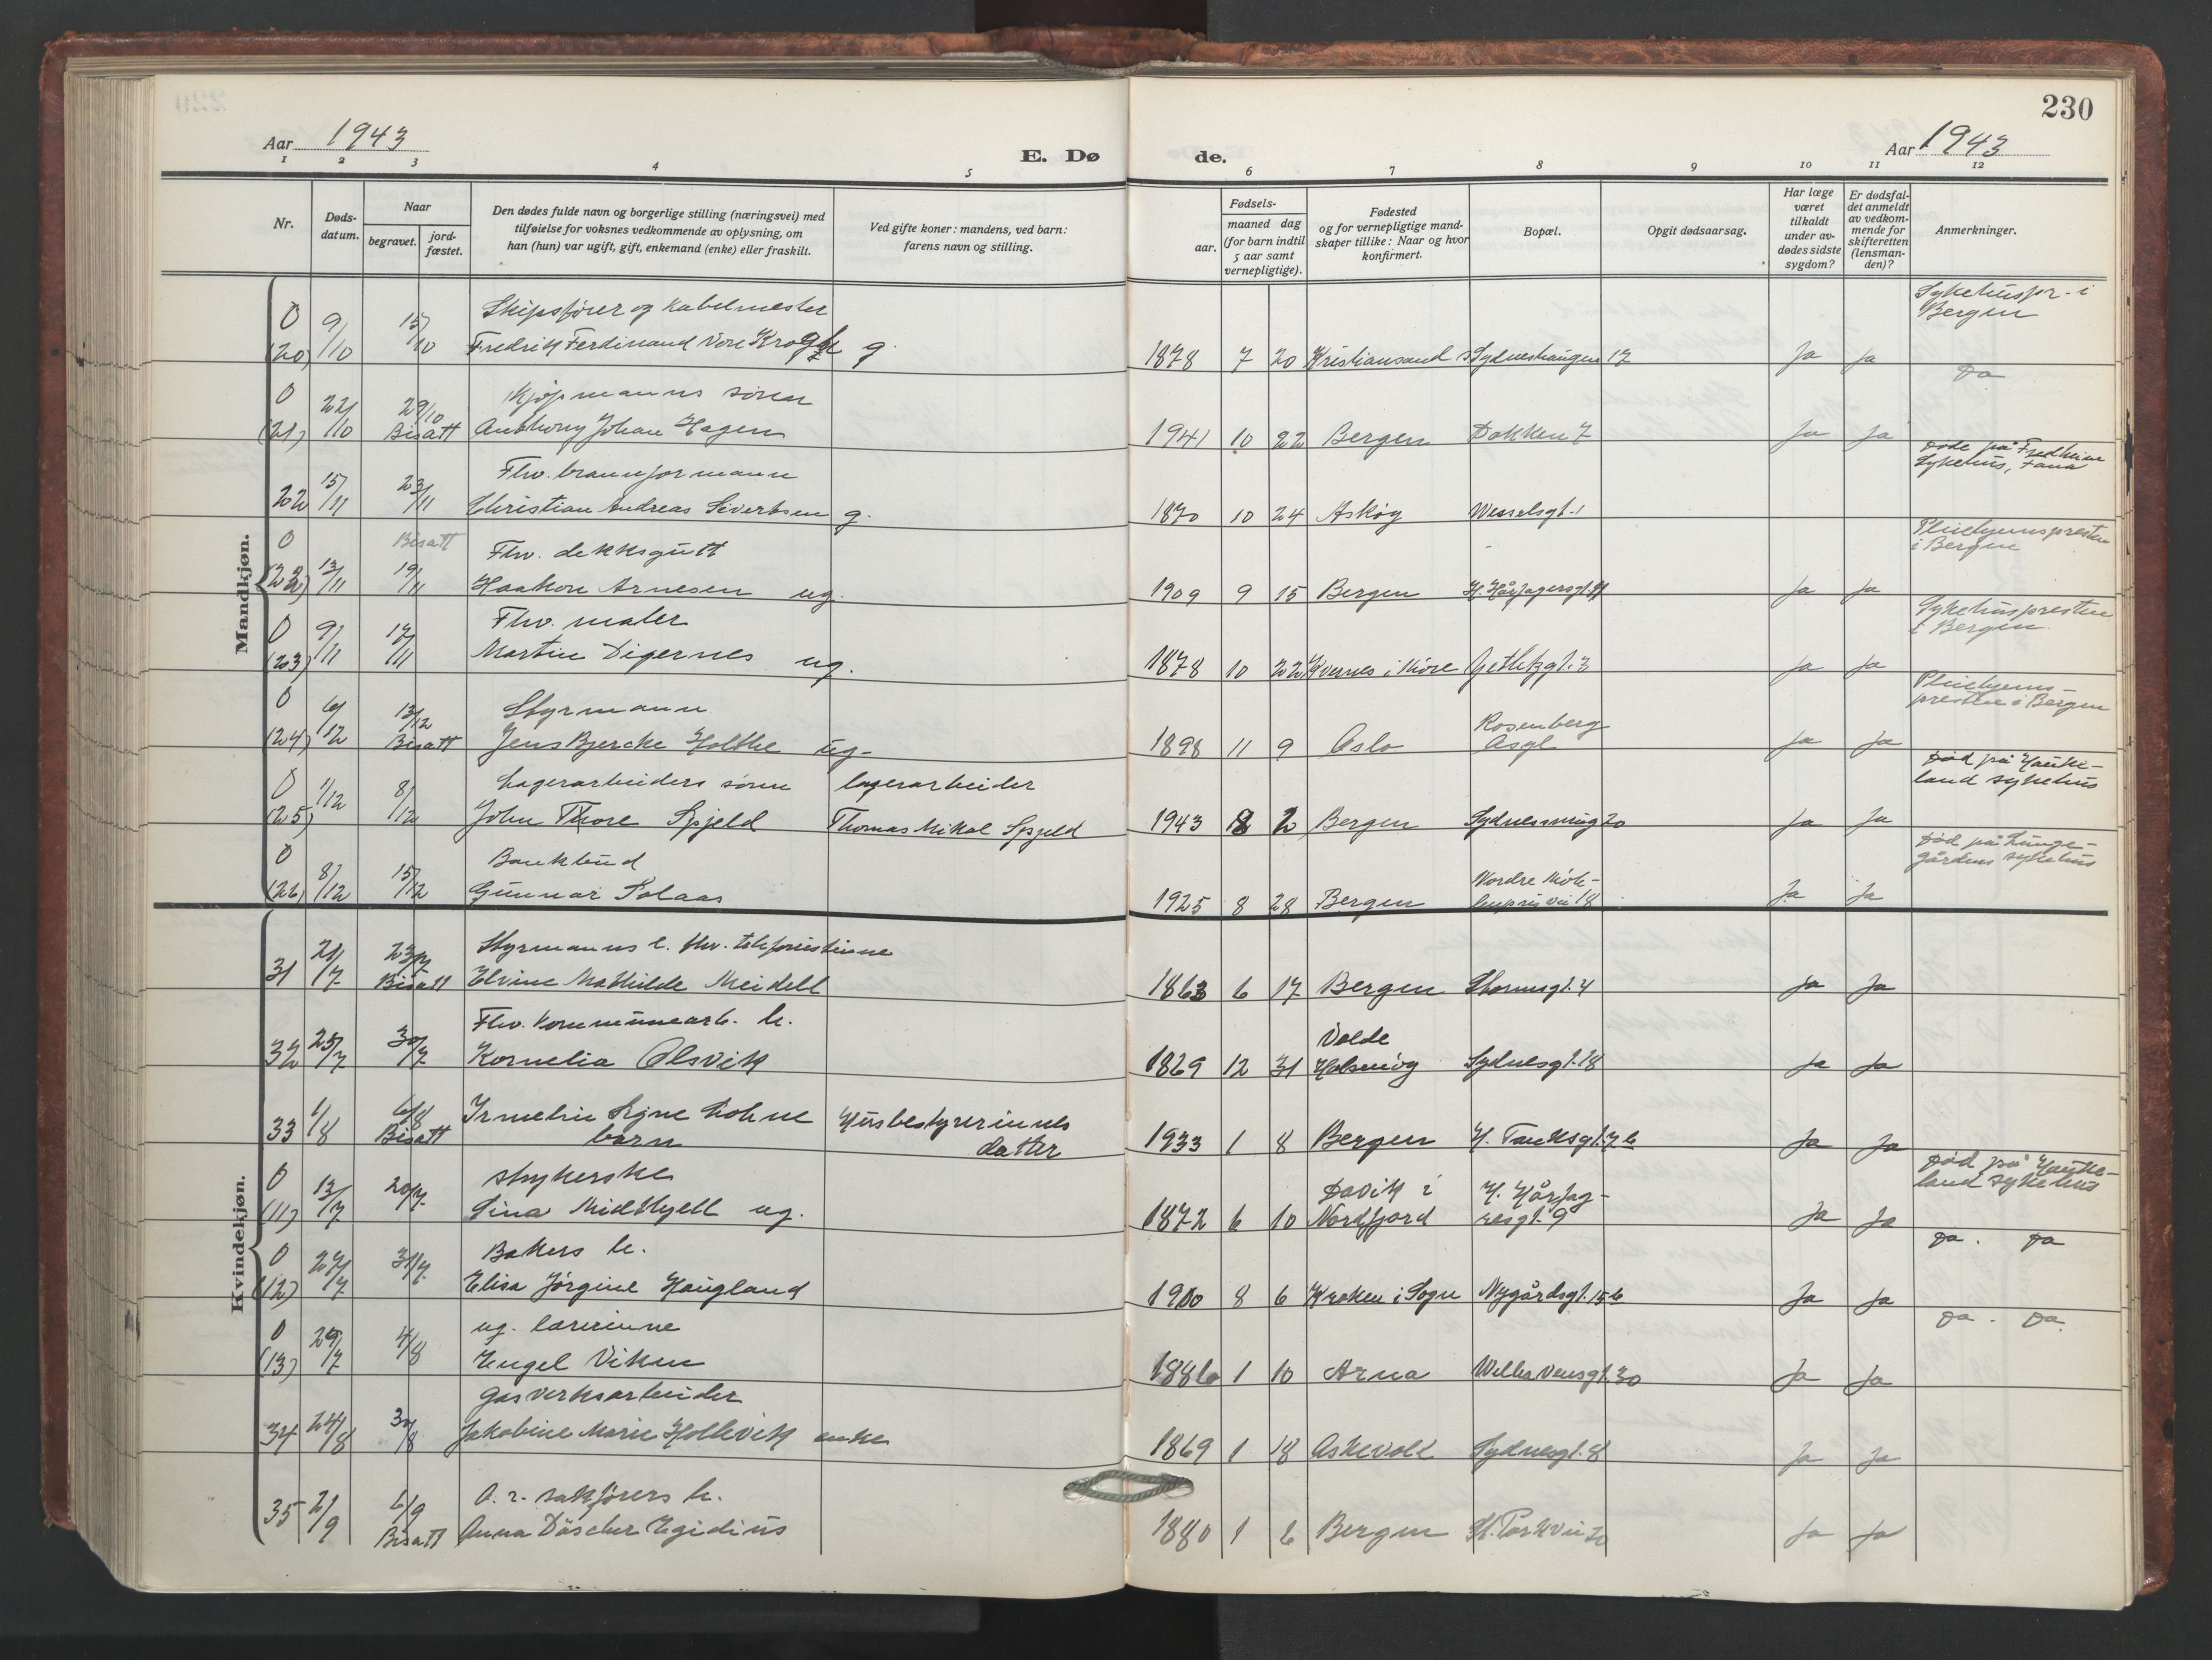 230
Aar 1943
E. Dø
de.
Aar 1943
1 2 3 4 5
6 7 8 9 10 11 12
Nr.
Døds-
datum.
Naar
begravet.
jord-
fæstet.
Den dødes fulde navn og borgerlige stilling (næringsvei) med
tilføielse for voksnes vedkommende av oplysning, om
han (hun) var ugift, gift, enkemand (enke) eller fraskilt.
Ved gifte koner: mandens, ved barn:
farens navn og stilling.
Fødsels-
aar.
maaned dag
(for barn indtil
5 aar samt
vernepligtige).
Fødested
og for vernepligtige mand-
skaper tillike: Naar og hvor
konfirmert.
Bopæl.
Opgit dødsaarsag.
Har læge
været
tilkaldt
under av-
dødes sidste
sygdom?
Er dødsfal-
det anmeldt
av vedkom-
mende for
skifteretten
(lensman-
den)?
Anmerkninger.
Mandkjøn.
0 Skipsfører og kabelmester Sykehuspr. i
Bergen
(20) 9/10 15/10 Fredrik Ferdinand Vore Krogh g. 1878 7 20 Kristiansand S Sydneshaugen 17 Ja Ja
0 Kjøpmanns sønn Da
(21) 22/10 29/10 Bisatt Anthony Johan Hagen 1941 10 22 Bergen Dokken 7 Ja Ja
Fhv. brannformann Døde på Fredheim
Sykehus, Fana
22 15/11 23/11 Christian Andreas Sivertsen g. 1870 10 24 Askøy Wesselsgt. 1
0 Bisatt Fhv. dekksgutt Pleiehjemspresten
i Bergen
(22) 13/11 19/11 Haakon Arnesen ug. 1909 9 15 Bergen H. Hårfagersgt.
Ja Ja
0 Fhv. maler Sykehuspresten
i Bergen
(23) 9/11 17/11 Martin Digernes ug. 1878 10 22 Kvernes i Møre
Ja Ja
0 Styrmann Pleiehjems-
presten i Bergen
(24) 6/12 13/12 Bisatt Jens Bjercke Holthe ug. 1898 11 9 Oslo Rosenberg
Asyl Ja Ja
0 Lagerarbeiders sønn lagerarbeider Død på Hauke-
land sykehus
(25) 1/12 8/12 John Thore Spjeld Thomas Mikal Spjeld 1943 2 Bergen Sydnessmug 20 Ja Ja
0 Bankbud Død på Lunge-
gårdens sykehus
(26) 8/12 15/12 Gunnar Solaas 1925 8 28 Bergen Nordre Møh-
lenpris vei 18 Ja Ja
Kvindekjøn.
Styrmanns e. fhv. telefonistinne
31 21/7 23/7 Bisatt Elvine Mathilde Meidell 1863 6 17 Bergen Stormsgt. 4 Ja Ja
Fhv. kommunearb. h.
32 25/7 30/7 Kornelia Olsvik 1869 12 31 Valde
Holsenøy Sydnesgt. 18 Ja Ja
33 1/8 6/8 Bisatt Irmelin Signe Lohne Husbestyrerinnes
barn datter
1933 1 8 Bergen H. Tanksgt. 7 b Ja Ja
0 strykerske Død på Hauke-
land sykehus
(11) 13/7 20/7 Sina Midthjell ug. 1872 6 10 Davik i
Nordfjord H. Hårfag-
resgt. 9 Ja Ja
0 Bakers h. Da. Da
(12) 27/7 31/7 Elisa Jørgine Haugland 1900 8 6 Kroken i Sogn Nygårdsgt. 15 b Ja Ja
0 ug. lærerinne Da. Da
(13) 29/7 4/8 Engel Viken 1886 1 10 Arna Welhavensgt. 30 Ja Ja
gasverksarbeider
34 24/8 30/8 Jakobine Marie Hollevik enke 1869 1 18 Askevold Sydnesgt. 8 Ja Ja
O. r. sakførers h.
35 2/9 6/9 Bisatt Anna Döscher Egidius 1880 1 6 Bergen St. Parkvei 20 Ja Ja